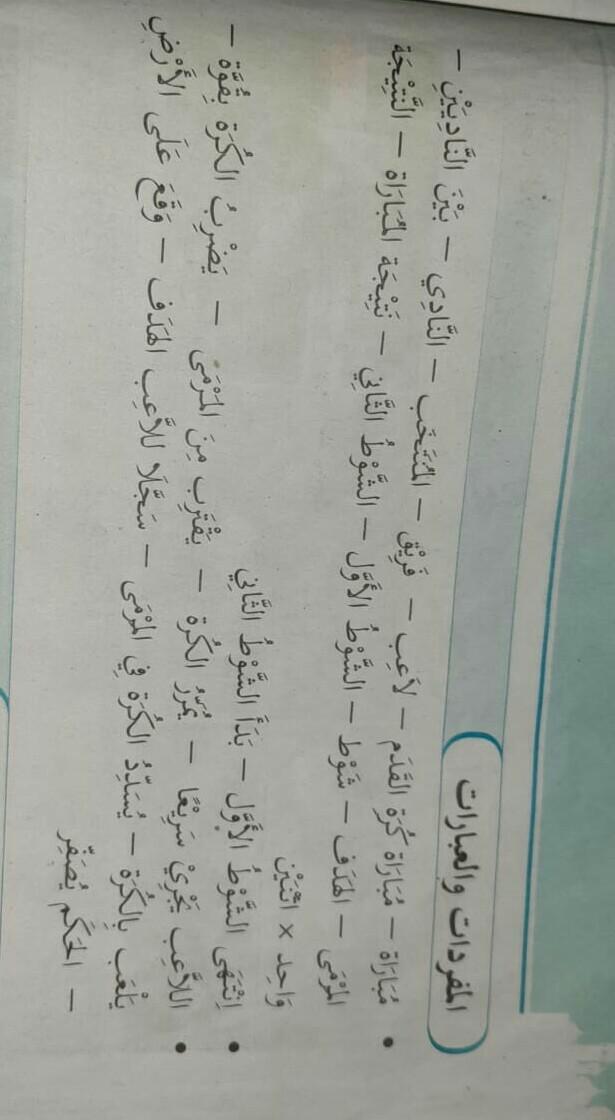 المفردات والعبارات
• مُبَارَاة – مُبَارَاة كُرَة القَدَم – لاَعِب – فَرِيْق – المُنْتَخَب – النَّادِي – بَيْنَ النَّادِيَيْنِ –
المَرْمَى – الهَدَف – شَوْط – الشَّوْطُ الأَوَّل – الشَّوْطُ الثَّانِي – نَتِيْجَة المُبَارَاة – النَّتِيْجَة
وَاحِد × اثْنَيْن
• اِنْتَهَى الشَّوْطُ الأَوَّل – بَدَأَ الشَّوْطُ الثَّانِي
• اللاَّعِب يَجْرِيْ سَرِيْعًا – يُمَرِّرُ الكُرَة – يَقْتَرِب مِنَ المَرْمَى – يَضْرِبُ الكُرَة بِقُوَّة –
يَلْعَب بِالكُرَة – يُسَدِّدُ الكُرَة فِي المَرْمَى – سَجَّلَا للاَّعِب الهَدَف – وَقَعَ عَلَى الأَرْضِ
– الحَكَم يُصَفِّر